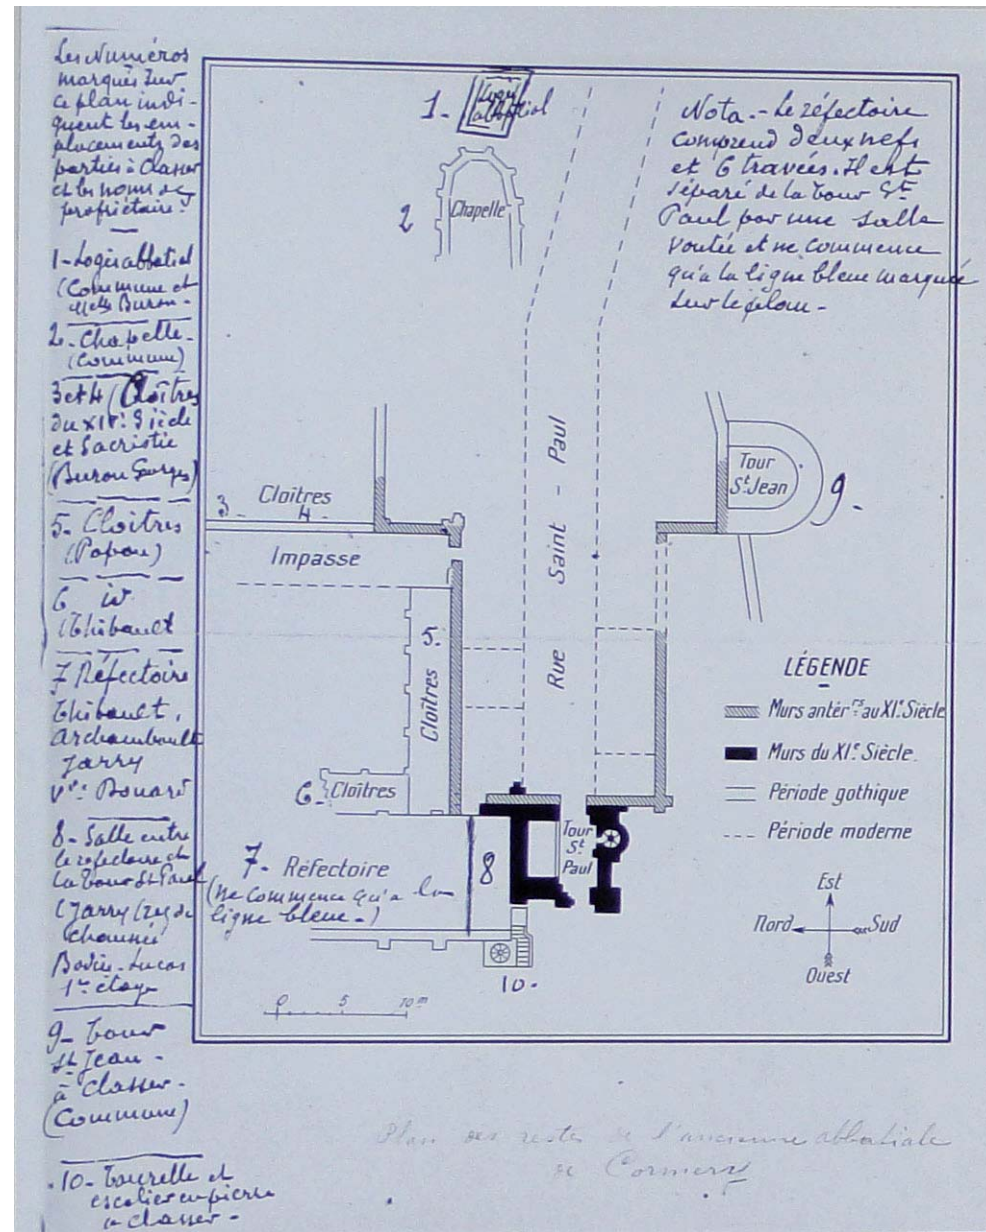 Les Numéros
marqués sur
ce plan indi-
quent les em-
placements des
parties à classer
et les noms de
propriétaire.
1 - Logis abbatial
(Commune et
Buron -
2 - Chapelle -
(Commune)
3 et 4 (Cloîtres
du XIVe Siècle
et Sacristie
(Buron Georges)
5. Cloîtres
(Papou)
6 id
(Thibault
7 Réfectoire
Thibault,
Archambault
Jarry
Vve Bouard
8 - Salle entre
le réfectoire et
la Tour St Paul
(Jarry (rez de
chaussée
Bodin-Lucas
1er étage
9 - Tour
St Jean -
à classer -
(Commune)
10 - Tourelle et
escalier en pierre
à classer -
1 - Logis
abbatial
2 Chapelle
Nota. - Le réfectoire
comprend deux nefs
et 6 travées. Il est
séparé de la tour St
Paul par une salle
voutée et ne commence
qu'à la ligne bleue marquée
sur le plan -
Rue Saint - Paul
Tour
St Jean
9 -
Cloîtres
3 - 4 -
Impasse
5.
Cloîtres
6 - Cloîtres
7 - Réfectoire
(ne commence qu'à la
ligne bleue -)
8
Tour
St
Paul
10 -
LÉGENDE
Murs antérrs au XIe Siècle
Murs du XIe Siècle.
Période gothique
Période moderne
Est
Nord Sud
Ouest
0 5 10m
Plan des restes de l'ancienne abbatiale
de Cormery